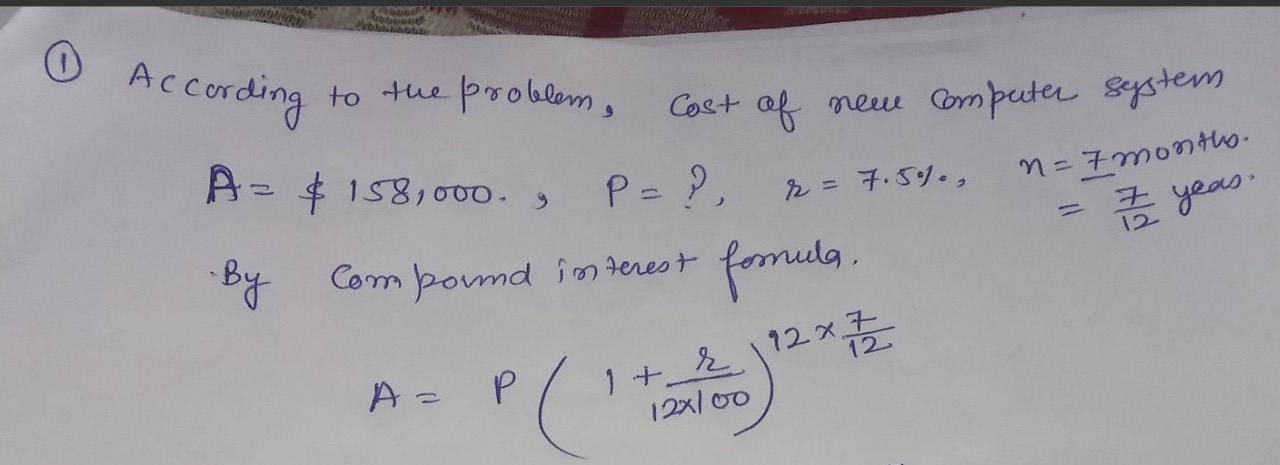 ① According to the problem, Cost of new Computer system
A = $ 158,000. , P = ?, r = 7.5%., n = 7 months.
= 7/12 years.
By Compound interest fomula.
A = P ( 1 + r/12x100 )^12 x 7/12